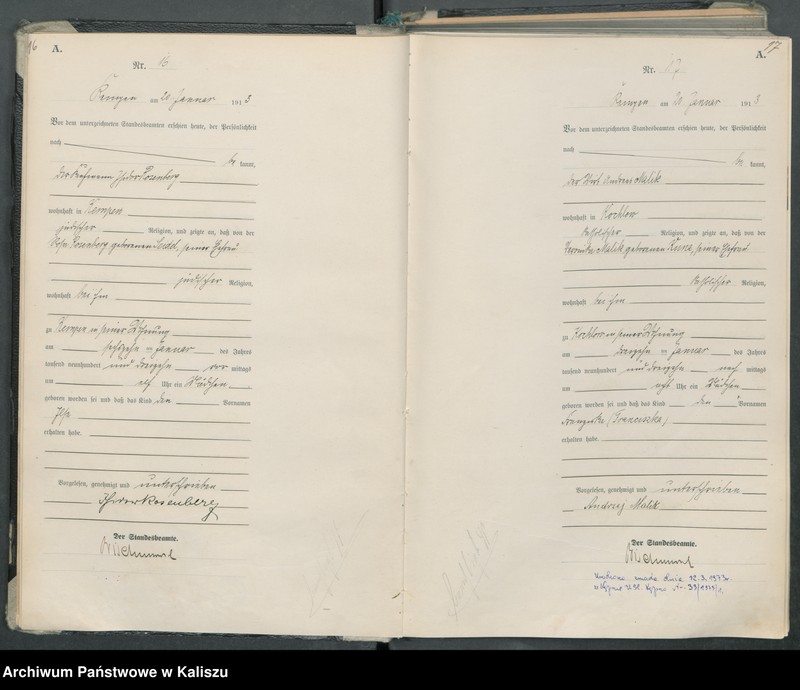 16
A.
Nr. 16
Kempen am 20. Januar 1913
Vor dem unterzeichneten Standesbeamten erschien heute, der Persönlichkeit
nach be kannt,
der Kaufmann Isidor Rosenberg
wohnhaft in Kempen
jüdischer Religion, und zeigte an, daß von der
Rosa Rosenberg geborenen seiner Ehefrau
jüdischer Religion,
wohnhaft bei ihm
zu Kempen in seiner Wohnung
am sechzehn ten Januar des Jahres
tausend neunhundert und dreizehn vor mittags
um elf Uhr ein Mädchen
geboren worden sei und daß das Kind den Vornamen
Ilse
erhalten habe.
Vorgelesen, genehmigt und unterschrieben
Isidor Rosenberg
Der Standesbeamte.
17
A.
Nr. 17
Kempen am 20. Januar 1913
Vor dem unterzeichneten Standesbeamten erschien heute, der Persönlichkeit
nach be kannt,
der Wirt Andreas Malik
wohnhaft in Kochlow
katholischer Religion, und zeigte an, daß von der
Veronika Malik geborenen seiner Ehefrau
katholischer Religion,
wohnhaft bei ihm
zu Kochlow in seiner Wohnung
am dreizehn ten Januar des Jahres
tausend neunhundert und dreizehn nach mittags
um acht Uhr ein Mädchen
geboren worden sei und daß das Kind den Vornamen
Franziska (Franciszka)
erhalten habe.
Vorgelesen, genehmigt und unterschrieben
Andrzej Malik
Der Standesbeamte.
dnia 12.3.1973r.
w Kępnie USC Kępno
Archiwum Państwowe w Kaliszu